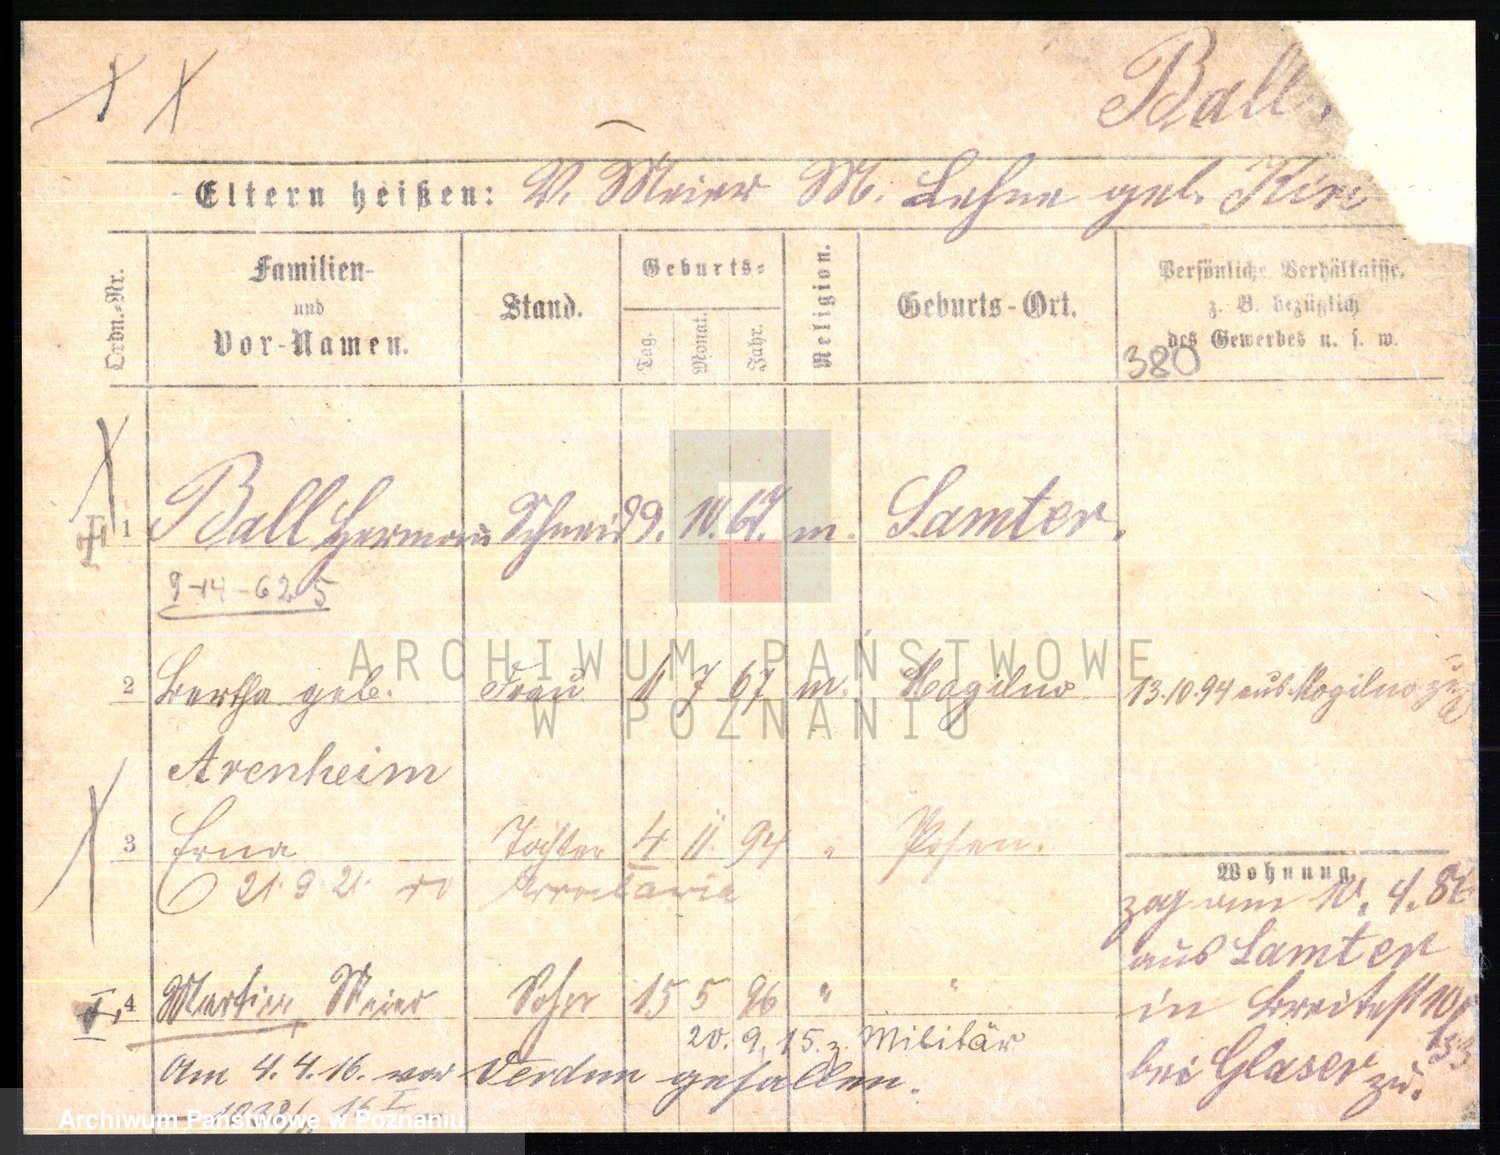 Ball.
Eltern heißen: V. Meier M. Lehne geb. Kir
Ordn.-Nr.
Familien-
und
Vor-Namen.
Stand.
Geburts-
Tag.
Monat.
Jahr.
Religion.
Geburts-Ort.
Persönliche Verhältnisse,
z. B. bezüglich
des Gewerbes u. s. w.
380
1 Ball Hermann Schneid 29. 10. 67. m. Samter.
9-14-625
2 Bertha geb. Frau 11 7 67 m. Mogilno 13.10.94 aus Mogilno zu
Arenheim
3 Erna Tochter 4 11. 94 " Posen.
21. 9. 21.
Wohnung.
zog am 10. 4. 86
aus Samter
in Breitestr 10
bei Gläser zu.
I. 4 Martin Meier Sohn 15 5 96 " "
20. 9. 15. z. Militär
Am 4. 4. 16. vor Verdun gefallen.
ARCHIWUM PAŃSTWOWE
W POZNANIU
Archiwum Państwowe w Poznaniu